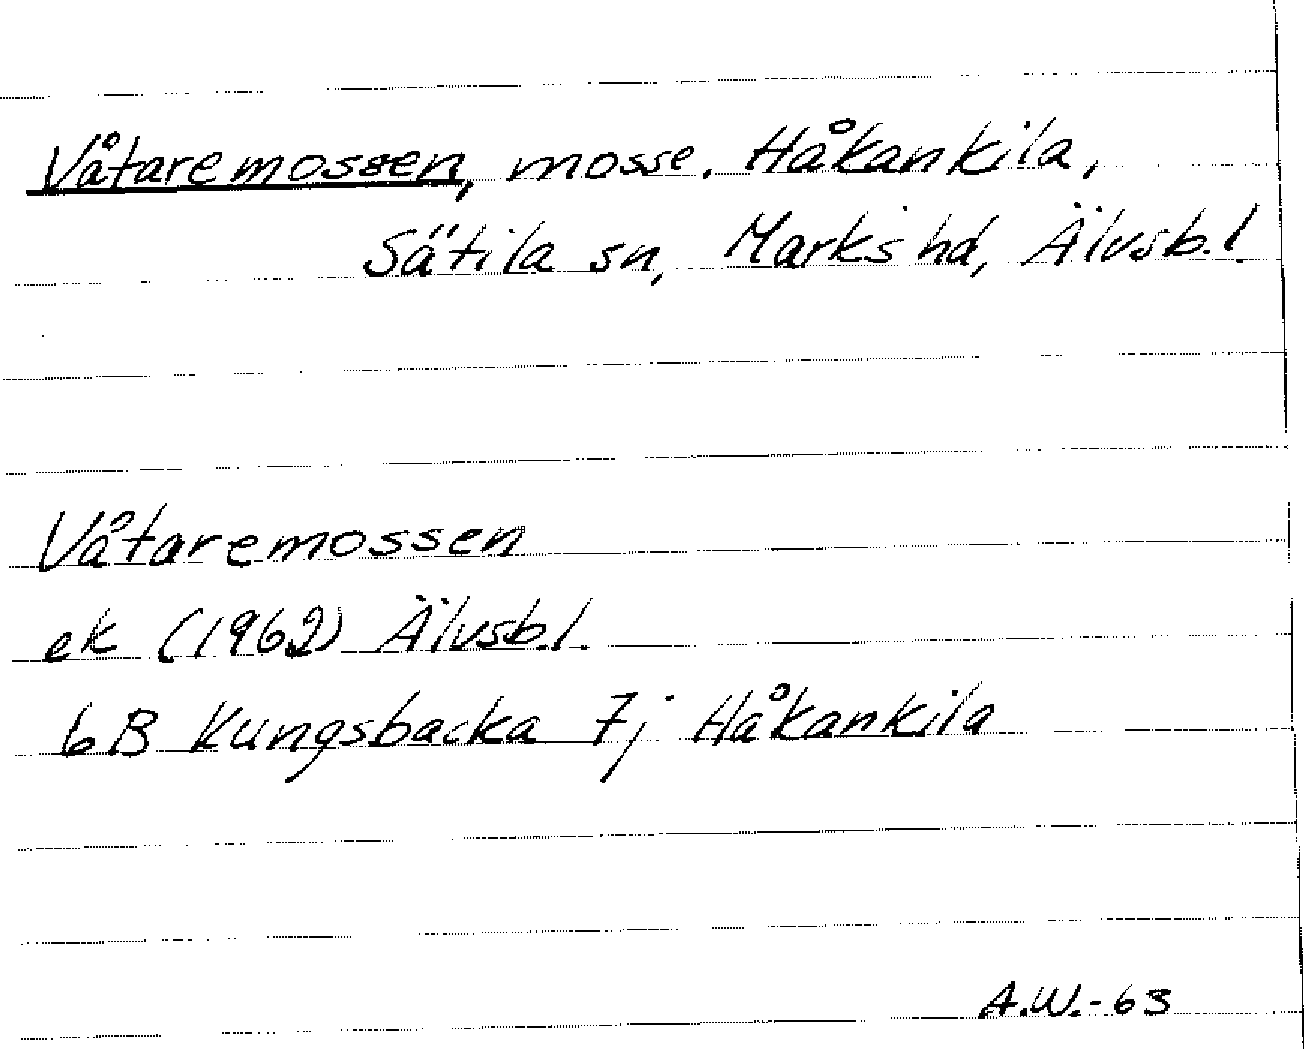 Våtaremossen, mosse, Håkankila,
Sätila sn, Marks hd, Älvsb.l.
Våtaremossen
ek (1962) Älvsb.l.
6B Kungsbacka 7j Håkankila
A.W.-63